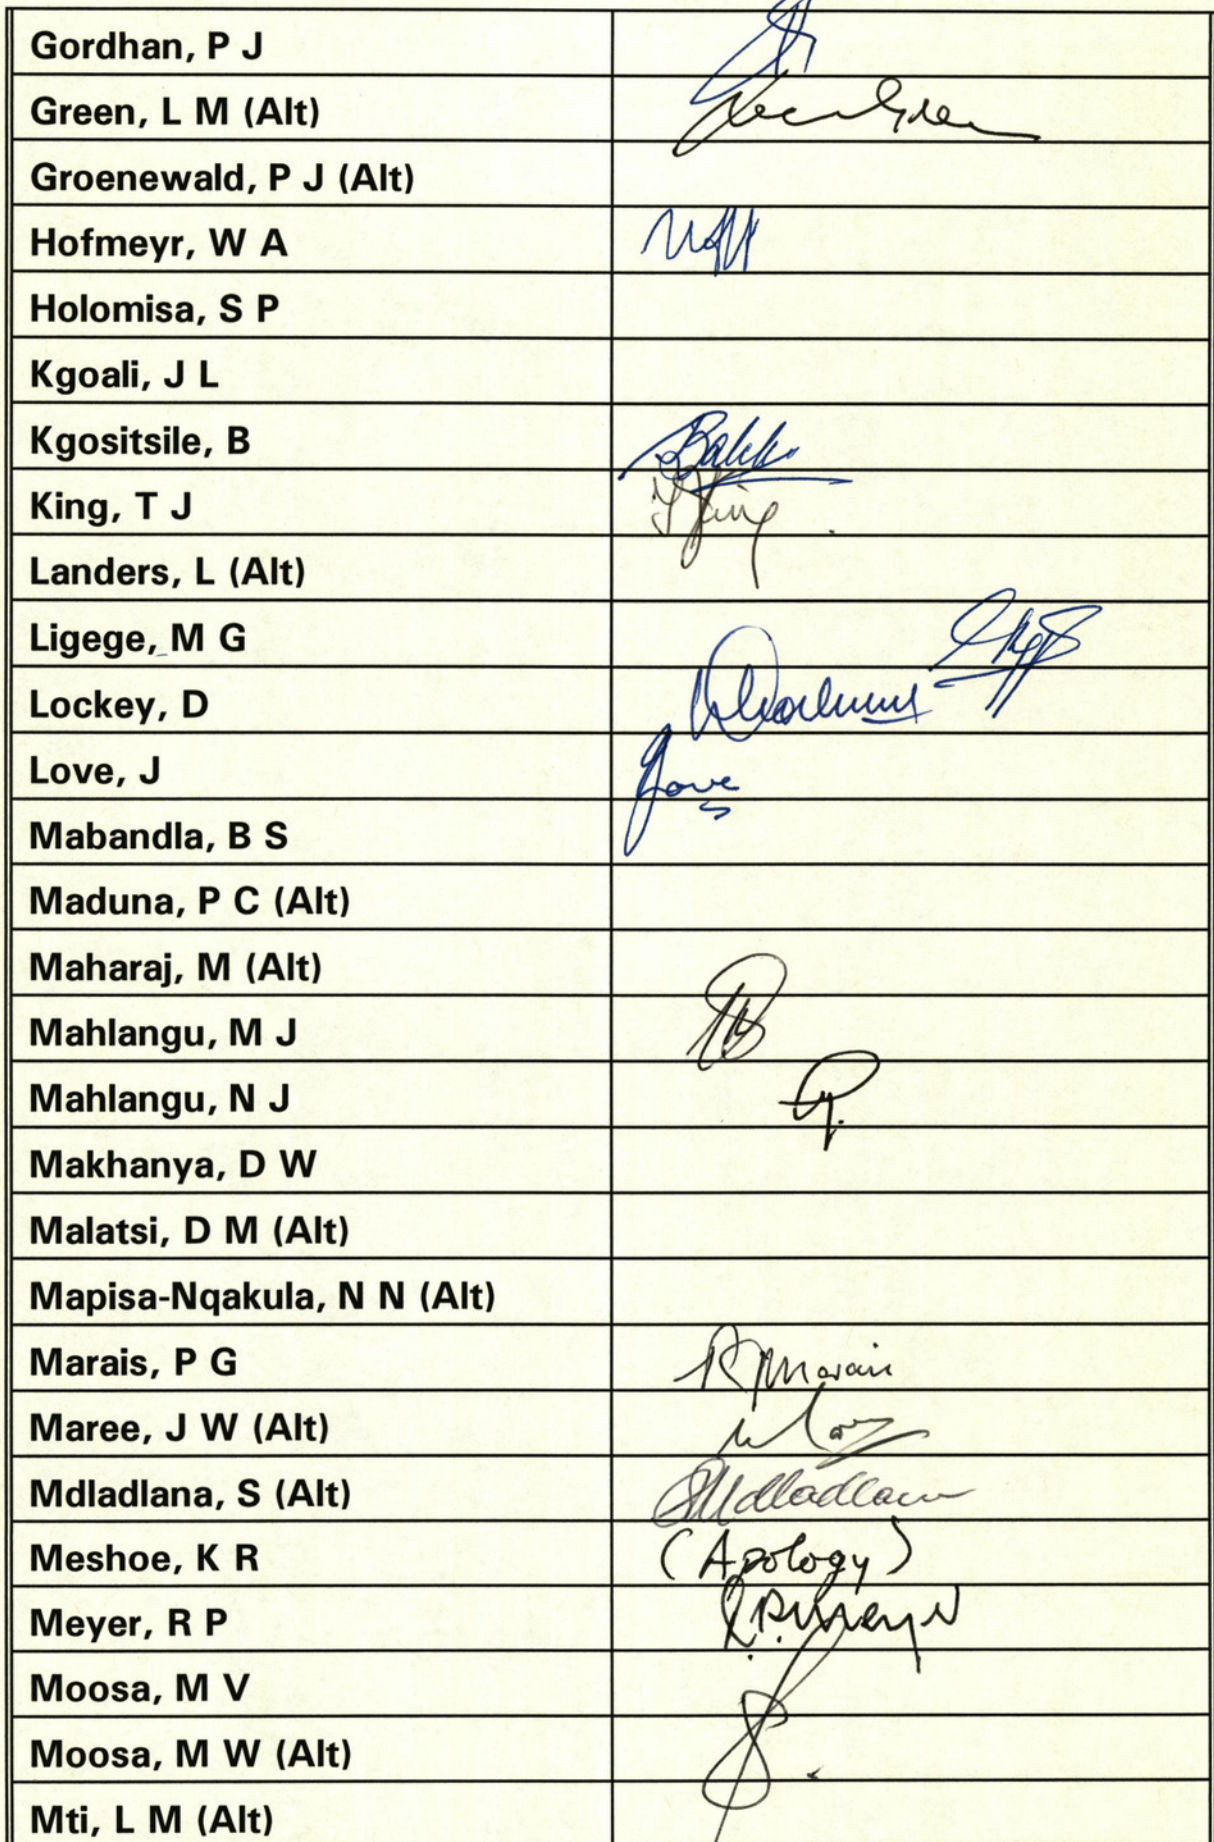 Gordhan, P J
Green, L M (Alt)
Groenewald, P J (Alt)
Hofmeyr, W A
Holomisa, S P
Kgoali, J L
Kgositsile, B
King, T J
Landers, L (Alt)
Ligege, M G
Lockey, D
Love, J Love
Mabandla, B S
Maduna, P C (Alt)
Maharaj, M (Alt)
Mahlangu, M J
Mahlangu, N J
Makhanya, D W
Malatsi, D M (Alt)
Mapisa-Nqakula, N N (Alt)
Marais, P G Marais
Maree, J W (Alt)
Mdladlana, S (Alt) SMdladlana
Meshoe, K R (Apology)
Meyer, R P R.P. Meyer
Moosa, M V
Moosa, M W (Alt)
Mti, L M (Alt)